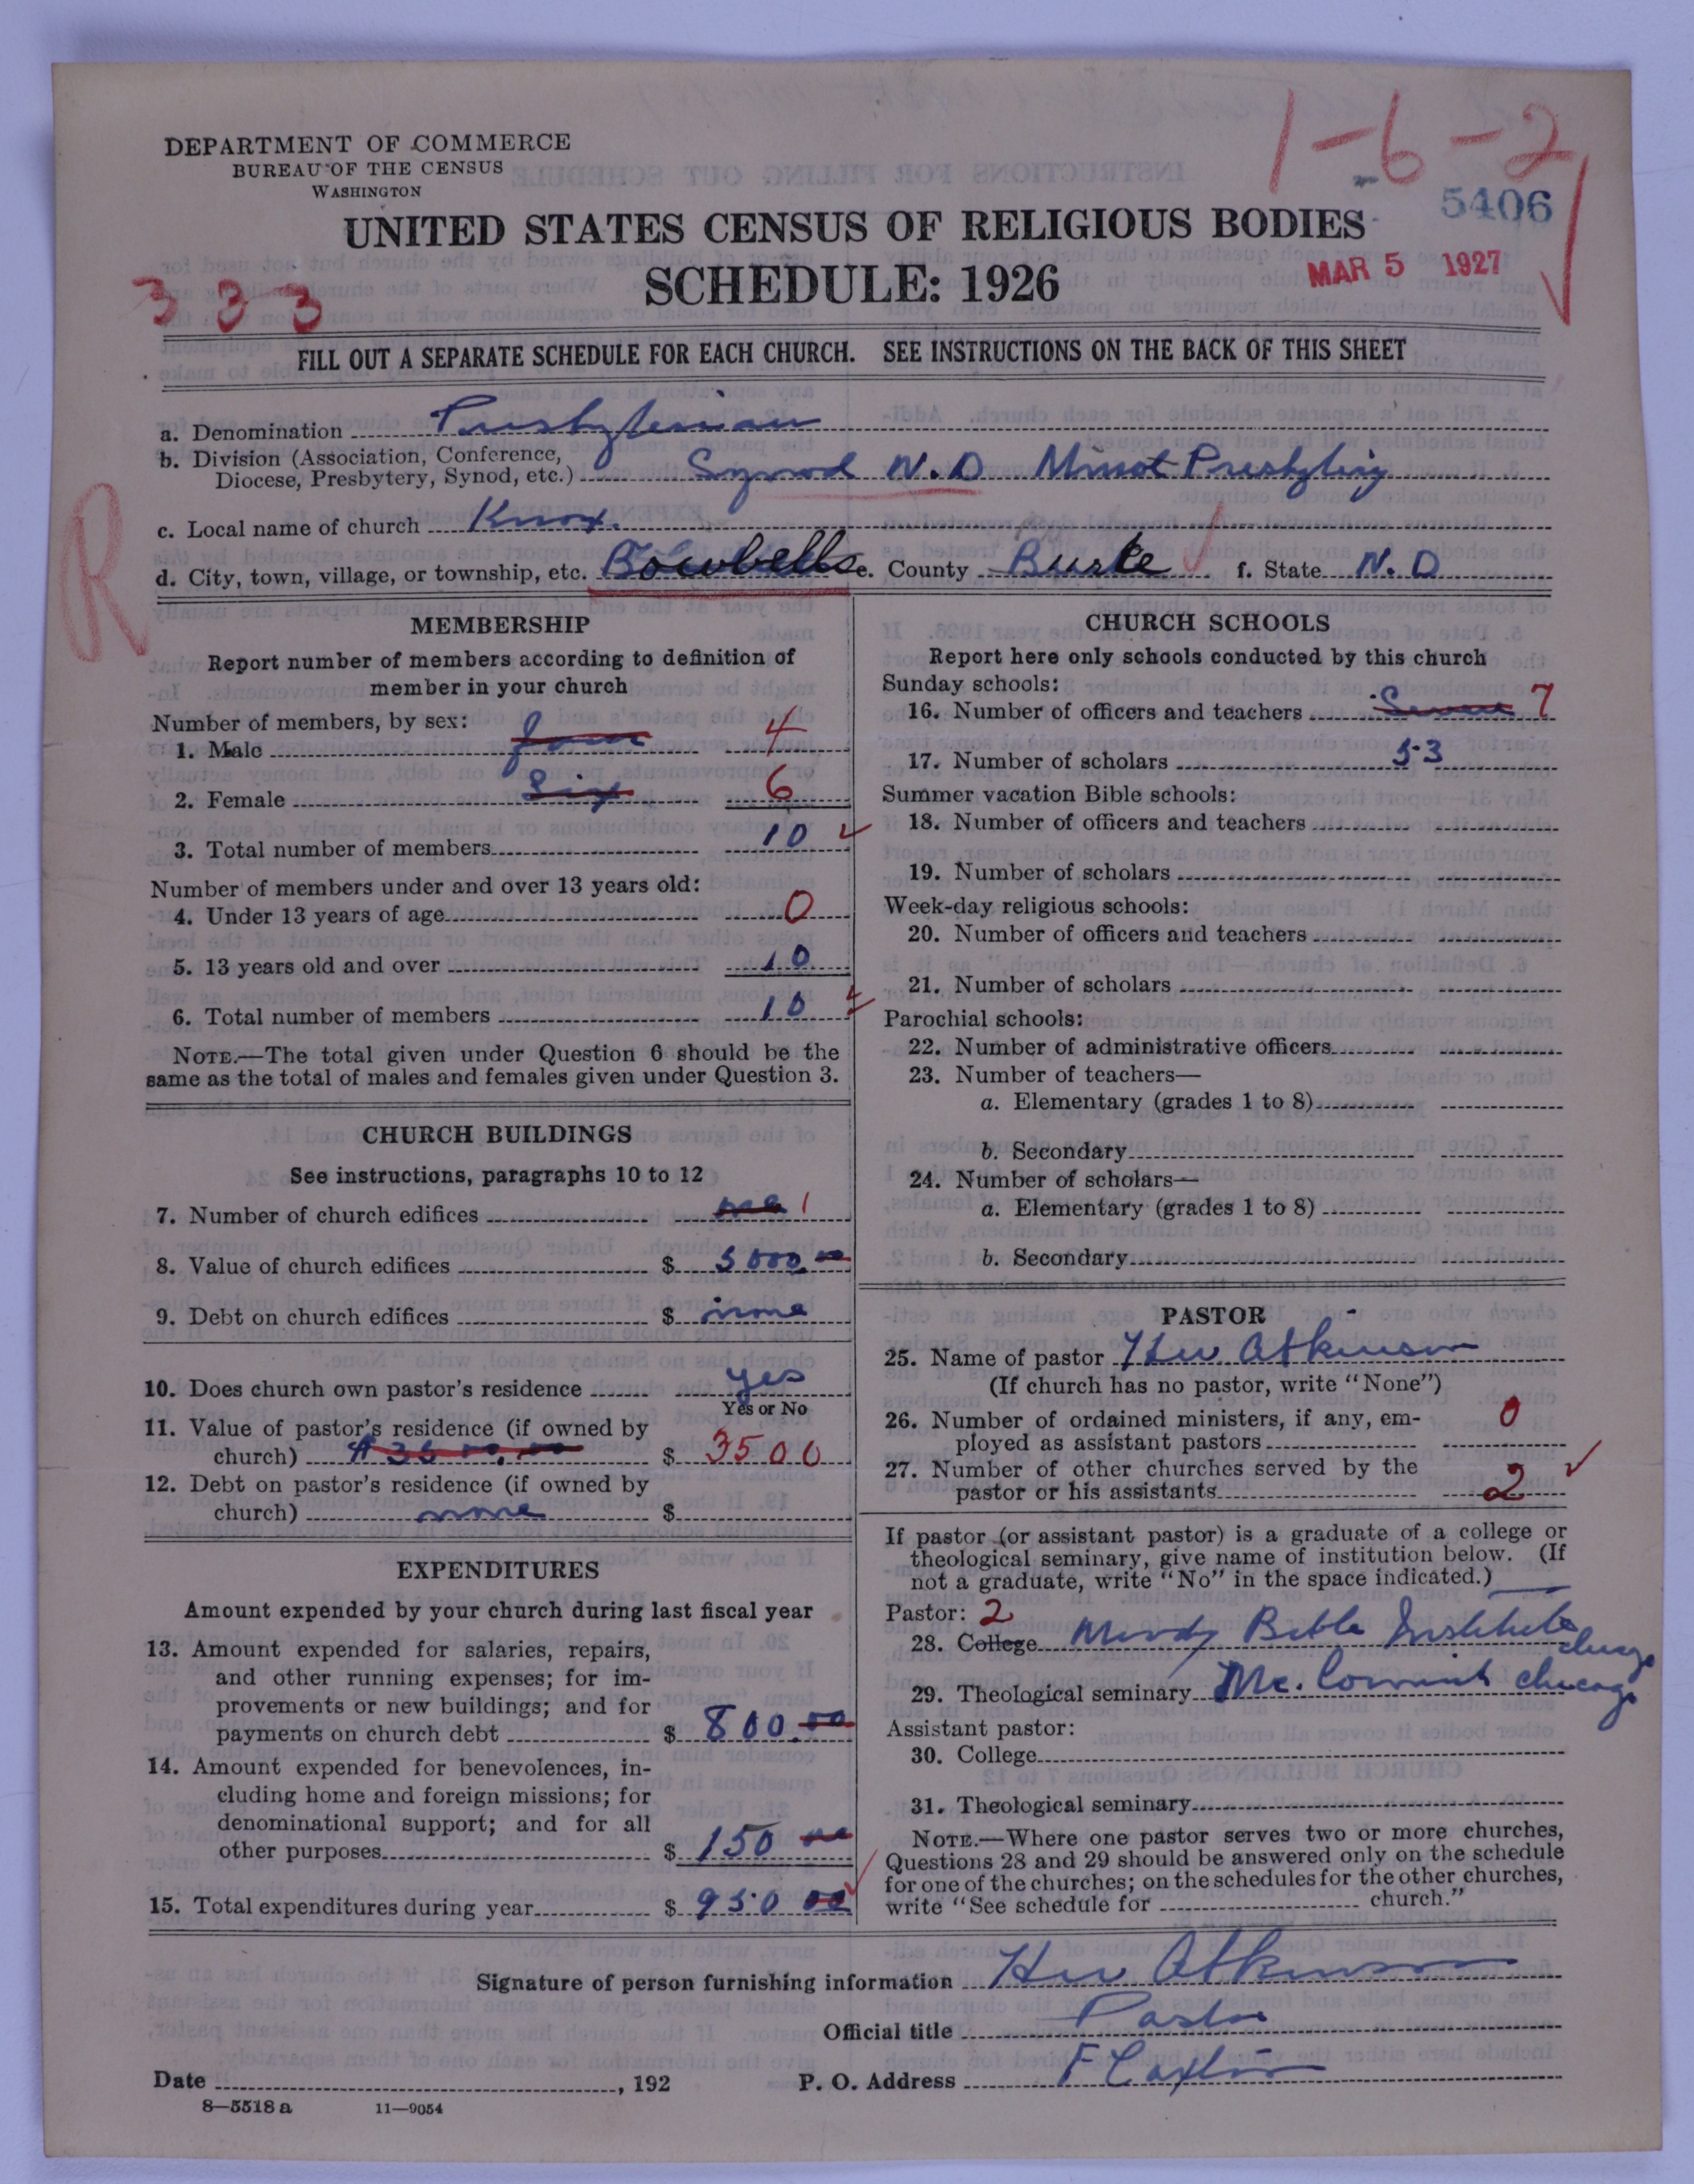 1-6-2
DEPARTMENT OF COMMERCE
BUREAU OF THE CENSUS
WASHINGTON
5406
UNITED STATES CENSUS OF RELIGIOUS BODIES
MAR 5 1927
SCHEDULE: 1926
333
FILL OUT A SEPARATE SCHEDULE FOR EACH CHURCH. SEE INSTRUCTIONS ON THE BACK OF THIS SHEET
a. Denomination Presbyterian
b. Division (Association, Conference,
Diocese, Presbytery, Synod, etc.) Synod N.D Minot Presbytery
R
c. Local name of church Knox.
d. City, town, village, or township, etc. Bowbells e. County Burke f. State N.D
MEMBERSHIP
Report number of members according to definition of
member in your church
Number of members, by sex:
1. Male four 4
2. Female Six 6
3. Total number of members 10
Number of members under and over 13 years old:
4. Under 13 years of age 0
5. 13 years old and over 10
6. Total number of members 10
NOTE.—The total given under Question 6 should be the
same as the total of males and females given under Question 3.
CHURCH BUILDINGS
See instructions, paragraphs 10 to 12
7. Number of church edifices one 1
8. Value of church edifices $ 5000.00
9. Debt on church edifices $ none
10. Does church own pastor's residence yes
Yes or No
11. Value of pastor's residence (if owned by
church) $3500.00 $ 3500
12. Debt on pastor's residence (if owned by
church) none $
EXPENDITURES
Amount expended by your church during last fiscal year
13. Amount expended for salaries, repairs,
and other running expenses; for im-
provements or new buildings; and for
payments on church debt $ 800.00
14. Amount expended for benevolences, in-
cluding home and foreign missions; for
denominational support; and for all
other purposes $ 150 00
15. Total expenditures during year $ 950 00
CHURCH SCHOOLS
Report here only schools conducted by this church
Sunday schools:
16. Number of officers and teachers Seven 7
17. Number of scholars 53
Summer vacation Bible schools:
18. Number of officers and teachers
19. Number of scholars
Week-day religious schools:
20. Number of officers and teachers
21. Number of scholars
Parochial schools:
22. Number of administrative officers
23. Number of teachers—
a. Elementary (grades 1 to 8)
b. Secondary
24. Number of scholars—
a. Elementary (grades 1 to 8)
b. Secondary
PASTOR
25. Name of pastor Atkinson
(If church has no pastor, write "None")
26. Number of ordained ministers, if any, em-
ployed as assistant pastors 0
27. Number of other churches served by the
pastor or his assistants 2
If pastor (or assistant pastor) is a graduate of a college or
theological seminary, give name of institution below. (If
not a graduate, write "No" in the space indicated.)
Pastor: 2
28. College Moody Bible Institute Chicago
29. Theological seminary Mc.Cormick Chicago
Assistant pastor:
30. College
31. Theological seminary
NOTE.—Where one pastor serves two or more churches,
Questions 28 and 29 should be answered only on the schedule
for one of the churches; on the schedules for the other churches,
write "See schedule for church."
Signature of person furnishing information Atkinson
Official title Pastor
Date , 192 P. O. Address Flaxton
8—5518a 11—9054